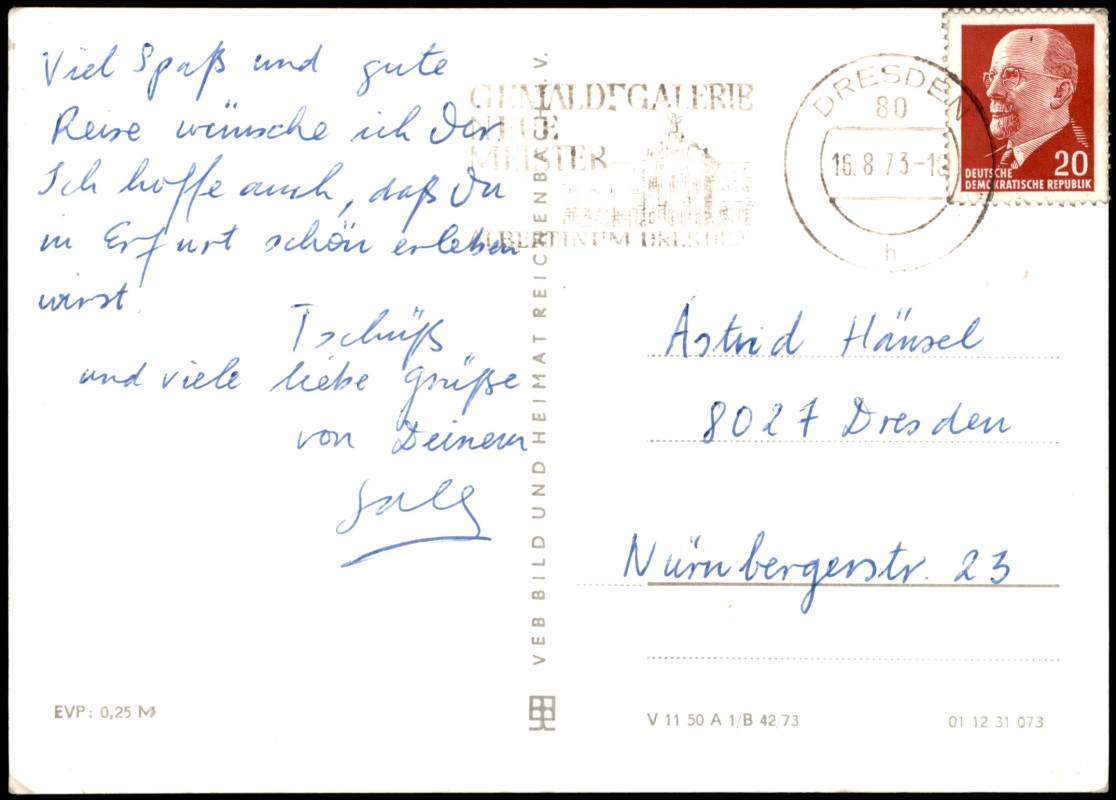 Viel Spaß und gute
Reise wünsche ich Dir
Ich hoffe auch, daß Du
in Erfurt schön erleben
wirst.
Tschüß
und viele liebe Grüße
von Deinem
GEMÄLDEGALERIE
NEUE
MEISTER
ALBERTINUM DRESDEN
DRESDEN
80
16.8.73-18
h
20
DEUTSCHE
DEMOKRATISCHE REPUBLIK
Astrid Hänsel
8027 Dresden
Nürnbergerstr. 23
VEB BILD UND HEIMAT REICHENBACH I.V.
EVP: 0,25 M
V 11 50 A 1/B 42/73
01 12 31 073